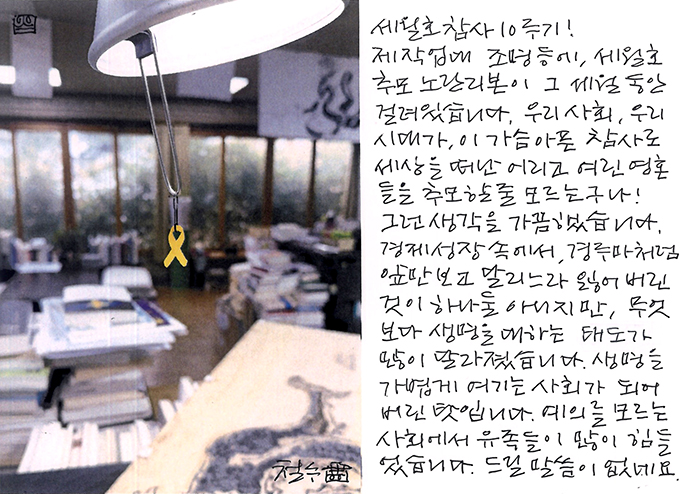 세월호 참사 10주기!
제 작업대 조명등에, 세월호
추모 노란리본이 그 세월 동안
걸려있습니다. 우리 사회, 우리
시대가, 이 가슴아픈 참사로
세상을 떠난 어리고 여린 영혼
들을 추모할줄 모르는구나!
그런 생각을 가끔 했습니다.
경제성장 속에서, 경주마처럼
앞만보고 달리느라 잃어버린
것이 하나둘 아니지만, 무엇
보다 생명을 대하는 태도가
많이 달라졌습니다. 생명을
가볍게 여기는 사회가 되어
버린 탓입니다. 예의를 모르는
사회에서 유족들이 많이 힘들
었습니다. 드릴 말씀이 없네요.
철수